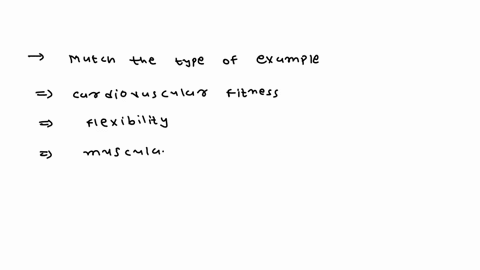 → Mutch the type of example
⇒ cardiovuscular fitness
⇒ flexibility
⇒ muscula.